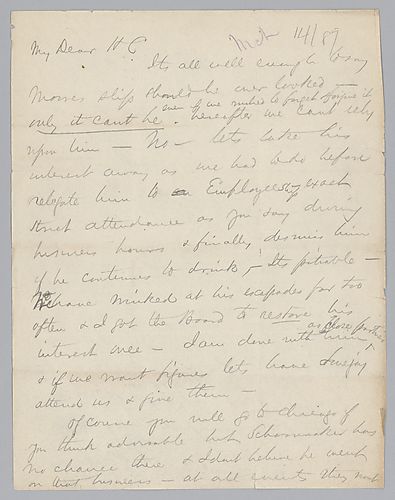 Mch 14/89
My Dear H C
Its all well enough to say
Morses slip should be over looked —
even if we wished to forget & forgive it
only it cant be. hereafter we cant rely
upon him — No — lets take his
interest away as we had to do before
relegate him to an Employee & exact
strict attendance as you say during
business hours & finally dismiss him
if he continues to drink, Its pitiable —
We have winked at his escapades far too
often & I got the Board to restore his
interest once — I am done with him as Close partner
& if we want figures lets have
attend us & give them —
Of course you will go to Chicago if
you think advisable but Schoonmaker has
no chance there & I dont believe he went
on that business — at all events they